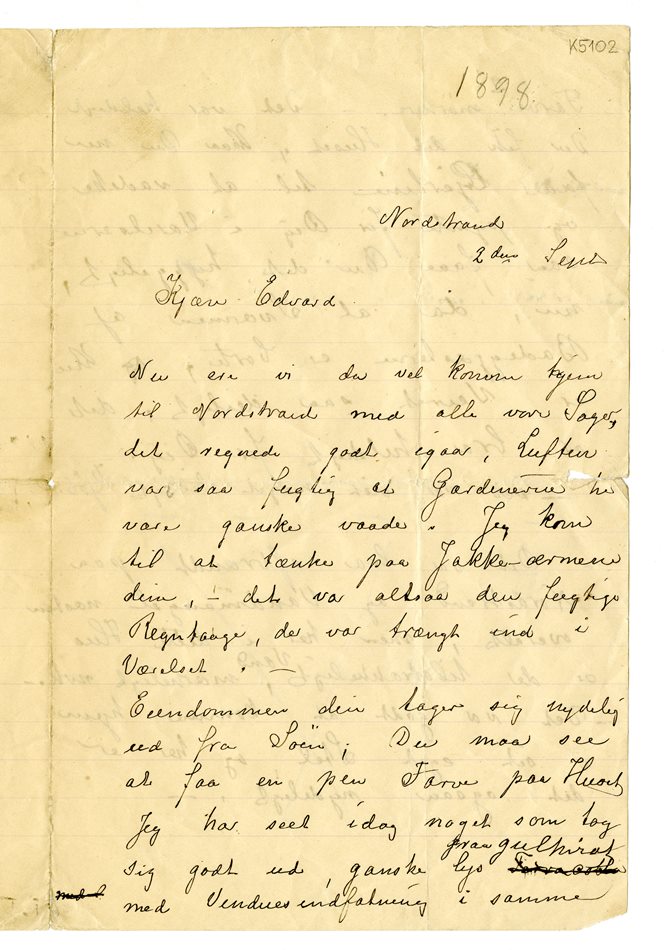 K5102
1898
Nordstrand
2den Sept
Kjære Edvard
Nu ere vi da vel komne hjem
til Nordstrand med alle vore Sager,
det regnede godt igaar, Luften
var saa fugtig at Gardenerne
vare ganske vaade. Jeg kom
til at tænke paa Jakke-ærmene
dine, – det var altsaa den fugtige
Regntaage, der var trængt ind i
Værelset. –
Eiendommen din tager sig nydelig
ud fra Søen; Du maa see
at faa en pen Farve paa Huset
Jeg har seet idag noget som tog
sig godt ud, ganske lys Terracotta
med Vinduesindfatning i samme